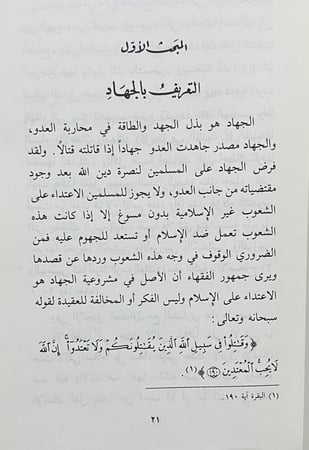 المبحث الأول
التعريف بالجهاد
الجهاد هو بذل الجهد والطاقة في محاربة العدو،
والجهاد مصدر جاهدت العدو جهاداً إذا قاتلته قتالاً. ولقد
فرض الجهاد على المسلمين لنصرة دين الله بعد وجود
مقتضياته من جانب العدو، ولا يجوز للمسلمين الاعتداء على
الشعوب غير الإسلامية بدون مسوغ إلا إذا كانت هذه
الشعوب تعمل ضد الإسلام أو تستعد للهجوم عليه فمن
الضروري الوقوف في وجه هذه الشعوب وردها عن قصدها
ويرى جمهور الفقهاء أن الأصل في مشروعية الجهاد هو
الاعتداء على الإسلام وليس الفكر أو المخالفة للعقيدة لقوله
سبحانه وتعالى:
﴿وَقَٰتِلُوا۟ فِى سَبِيلِ ٱللَّهِ ٱلَّذِينَ يُقَٰتِلُونَكُمْ وَلَا تَعْتَدُوٓا۟ إِنَّ ٱللَّهَ
لَا يُحِبُّ ٱلْمُعْتَدِينَ ۝١٩٠﴾ (١).
(١) البقرة آية ١٩٠.
٢١